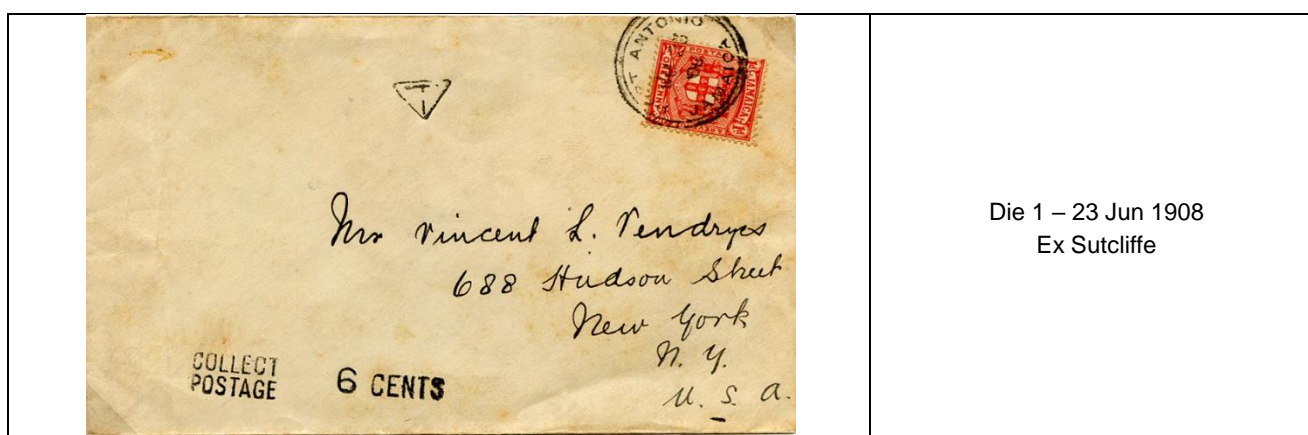 PT ANTONIO
JAMAICA
JAMAICA
T
Mr Vincent L. Vendryes
688 Hudson Street
New York
N. Y.
U. S. A.
COLLECT
POSTAGE
6 CENTS
Die 1 – 23 Jun 1908
Ex Sutcliffe